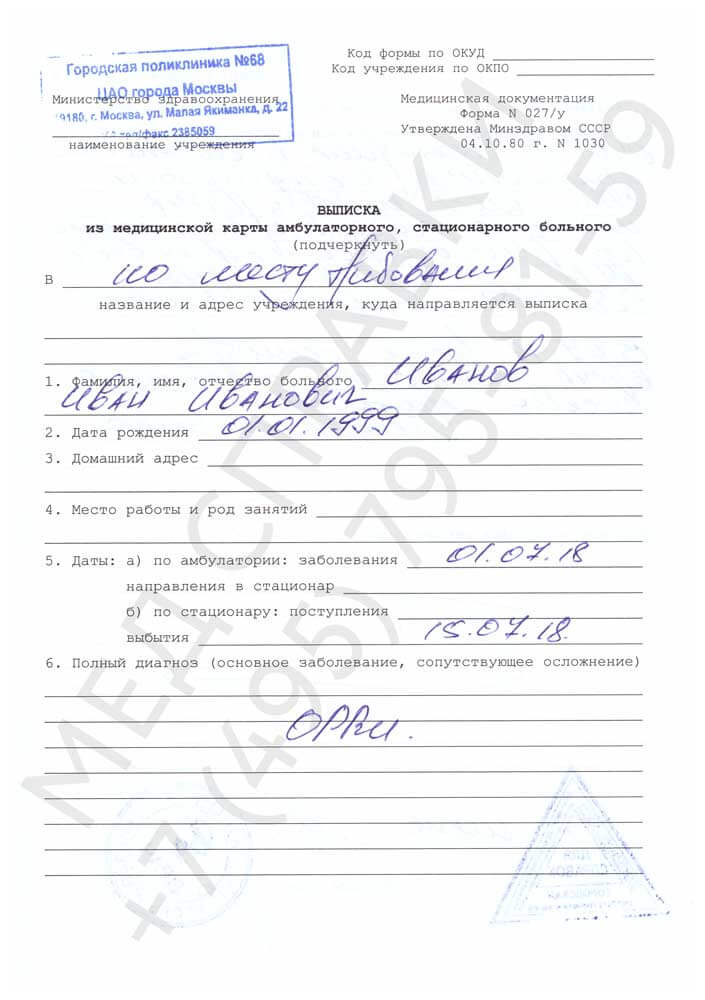 Городская поликлиника №68
ЦАО города Москвы
г. Москва, ул. Малая Якиманка, д. 22
тел/факс 2385059
Министерство здравоохранения
наименование учреждения
Код формы по ОКУД
Код учреждения по ОКПО
Медицинская документация
Форма N 027/у
Утверждена Минздравом СССР
04.10.80 г. N 1030
ВЫПИСКА
из медицинской карты амбулаторного, стационарного больного
(подчеркнуть)
В по месту требования
название и адрес учреждения, куда направляется выписка
1. Фамилия, имя, отчество больного Иванов
Иван Иванович
2. Дата рождения 01.01.1999
3. Домашний адрес
4. Место работы и род занятий
5. Даты: а) по амбулатории: заболевания 01.07.18
направления в стационар
б) по стационару: поступления
выбытия 15.07.18.
6. Полный диагноз (основное заболевание, сопутствующее осложнение)
ОРВИ.
МЕД СПРАВКИ
+7 (495) 795-81-59